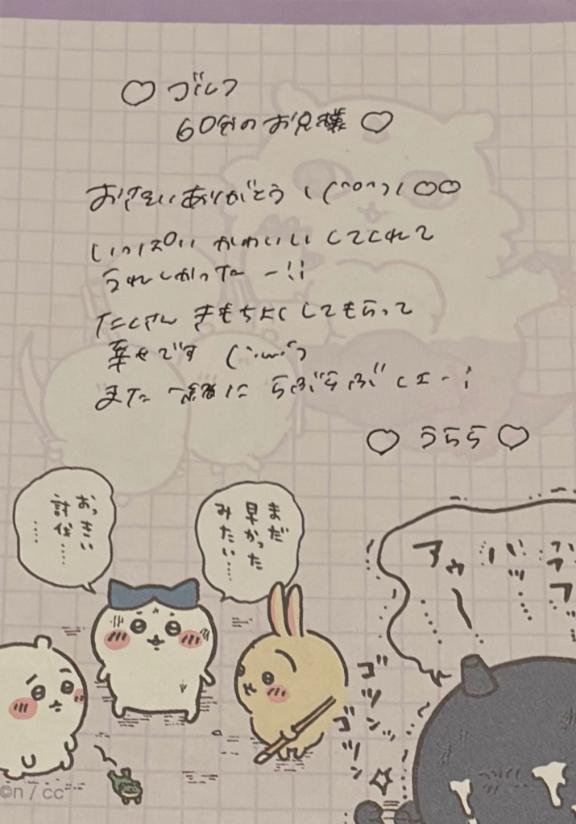 ♡ ゴルフ
60分のお兄様 ♡
おさそいありがとう ! (^o^) ! ♡♡
いっぱい かわいい してくれて
うれしかったー!!
たくさん きもちよく してもらって
幸せです (´;ω;`)
また 一緒に らぶらぶ しよー!
♡ うらら ♡
おっきい
討伐……
……
まだ
早かった
みたい…
アゥ
ゴツン
ゴツン
©n / cc